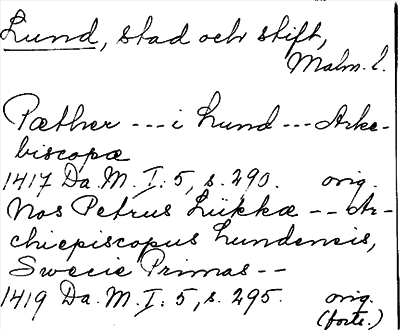 Lund, stad och stift,
Malm. l.
Pæther --- i Lund --- Arke-
biscopæ
1417 Da. M. I: 5, s. 290. orig.
Nos Petrus Lükkæ -- Ar-
chiepiscopus Lundensis,
Swecie Primas --
1419 Da. M. I: 5, s. 295. orig.
(forts.)